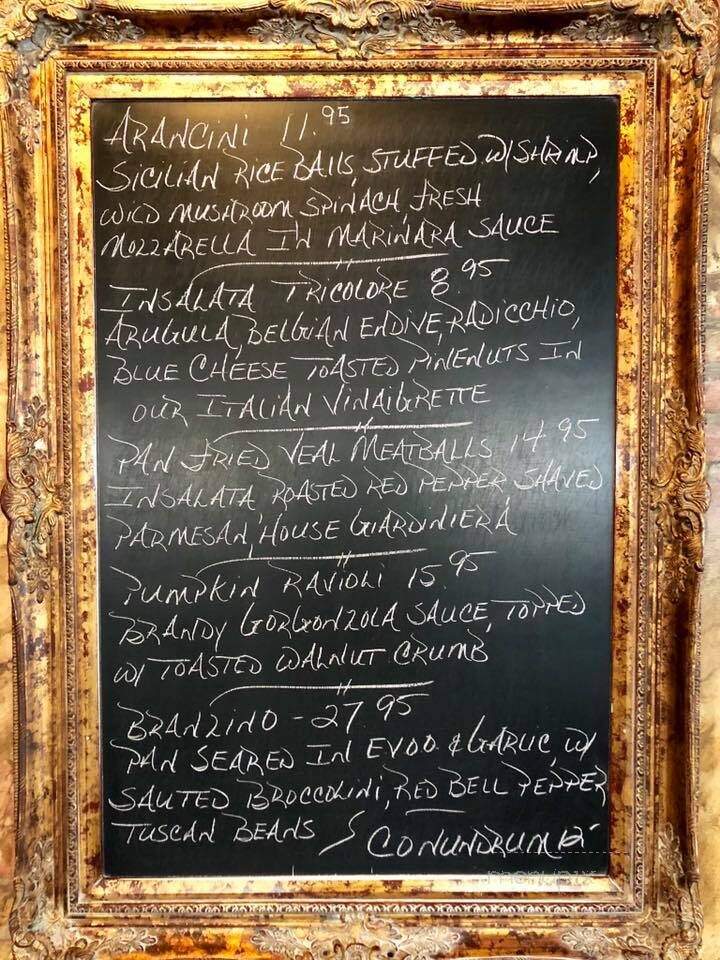 ARANCINI 11.95
SICILIAN RICE BALLS, STUFFED W/ SHRIMP,
WILD MUSHROOM, SPINACH, FRESH
MOZZARELLA IN MARINARA SAUCE
INSALATA TRICOLORE 8.95
ARUGULA, BELGIAN ENDIVE, RADICCHIO,
BLUE CHEESE TOASTED PINENUTS IN
OUR ITALIAN VINAIGRETTE
PAN FRIED VEAL MEATBALLS 14.95
INSALATA ROASTED RED PEPPER, SHAVED
PARMESAN, HOUSE GIARDINIERA
PUMPKIN RAVIOLI 15.95
BRANDY GORGONZOLA SAUCE, TOPPED
W/ TOASTED WALNUT CRUMB
BRANZINO - 27.95
PAN SEARED IN EVOO & GARLIC, W/
SAUTED BROCCOLINI, RED BELL PEPPER
TUSCAN BEANS / CONUNDRUM 12-